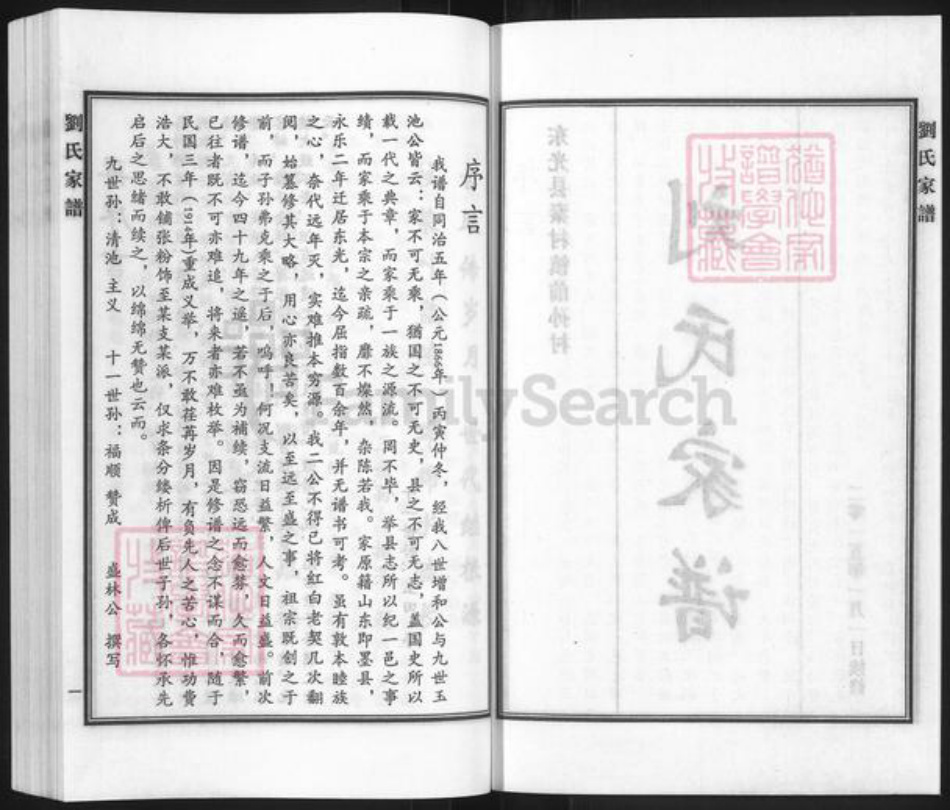 劉氏家譜
序言
我谱自同治五年（公元1866年）丙寅仲冬，经我八世增和公与九世玉
池公皆云：家不可无乘，猶国之不可无史，县之不可无志，盖国史所以
载一代之典章，而家乘于一族之源流。罔不毕，举县志所以纪一邑之事
绩，而家乘于本宗之亲疏，靡不燦然，杂陈若我。家原籍山东即墨县，
永乐二年迁居东光，迄今屈指数百余年，并无谱书可考。虽有敦本睦族
之心，奈代远年灭，实难推本穷源。我二公不得已将红白老契几次翻
阅，始篡修其大略，用心亦良苦矣，以至远至盛之事，祖宗既创之于
前，而子孙弗克乘之于后，鸣呼！何况支流日益繁，人文日益盛。前次
修谱，迄今四十九年之遥，若不亟为补续，窃恐远而愈棼，久而愈繁，
已往者既不可亦难追，将来者亦难枚举。因是修谱之念不谋而合，随于
民国三年（1914年）重成义举，万不敢荏苒岁月，有负先人之苦心，惟功费
浩大，不敢铺张粉饰至某支某派，仅求条分缕析俾后世子孙，各怀承先
启后之思绪而续之，以绵绵无赞也云而。
九世孙：清池 主义 十一世孙：福顺 赞成 盛林公 撰写
劉氏家譜
一
刘氏家谱
东光县秦村镇前孙村
FamilySearch